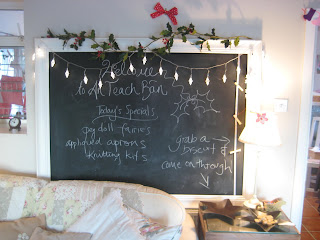 Welcome
to
Today's Specials
peg doll fairies
appliqued aprons
knitting kits
grab a
biscuit &
come on through